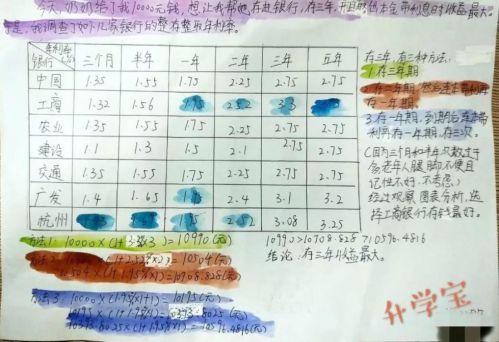 今天,奶奶给了我10000元钱,想让我帮她存进银行,存三年,并且想使本金带利息时收益最大。
于是,我调查了如下几家银行的整存整取年利率。
年利率 银行 三个月 半年 一年 二年 三年 五年
中国 1.35 1.55 1.75 2.25 2.75 2.75
工商 1.32 1.56 1.95 2.52 3.3
农业 1.35 1.55 1.75 2.25 2.75 2.75
建设 1.1 1.3 1.5 2.1 2.75 2.75
交通 1.35 1.55 1.75 2.25 2.75 2.75
广发 1.4 1.65 2.4 3.1 3.2
杭州 3.08 3.25
存三年,有三种方法:
1.存三年期
2.存一年期,然后连本带利
再存一年期。
3.存一年期,到期后连本带
利再存一年期,存三次。
(因为三个月和半年次数过于
多老年人腿脚不便且
记性不好,不考虑)
经过观察图表分析,选
择工商银行存钱最好。
方法1:10000×(1+3.3%×3)=10990(元)
方法2:10000×(1+2.52%×2)=10504(元)
10504×(1+1.95%×1)=10708.828(元)
方法3:10000×(1+1.95%×1)=10195(元)
10195×(1+1.95%×1)=10393.8025(元)
10393.8025×(1+1.95%×1)=10596.4816(元)
10990>10708.828>10596.4816
结论:存三年收益最大。
升学宝